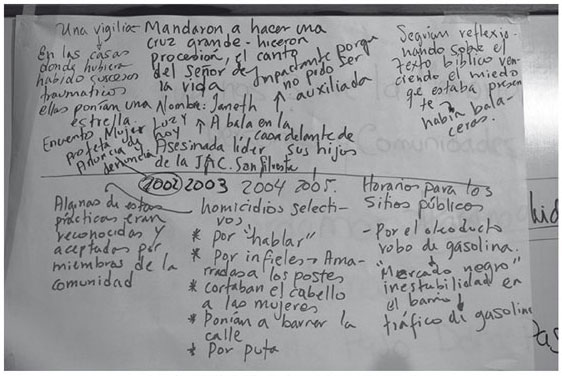 Una vigilia
En las casas
donde hubiera
habido sucesos
traumaticos
ellas ponían una
estrella.
Encuentro Mujer
Profeta de
Anuncio y
denuncia
Luz y
hoy
Mandaron a hacer una
cruz grande - hicieron
procesión, el canto
del señor de
la vida
Impactante porque
no pudo ser
auxiliada
Nombre: Janeth
A bala en la
casa delante de
sus hijos
Asesinada líder
de la JAC. San Silvestre
Seguían reflexio
nando sobre el
texto bíblico ven
ciendo el miedo
que estaba presen
te
había bala-
ceras.
2002 2003 2004 2005.
Algunas de estas
prácticas eran
reconocidas y
aceptadas por
miembros de la
comunidad
homicidios selecti-
vos
* Por "hablar"
* Por infieles → Ama-
rradas a los postes
* cortaban el cabello
a las mujeres
* Ponían a barrer la
calle
* Por puta
Horarios para los
Sitios públicos
- Por el oleoducto
robo de gasolina.
"Mercado negro"
inestabilidad en
el barrio
tráfico de gasolina